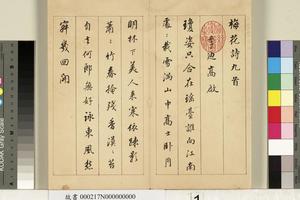 梅花詩九首
季迪高啟
瓊姿只合在瑤臺誰向江南
處〻栽雪滿山中高士臥月
明林下美人來寒依疎影
蕭〻竹春掩殘香漠〻苔
自去何郎無好詠東風愁
寂幾回開
故書 000217N000000000
1